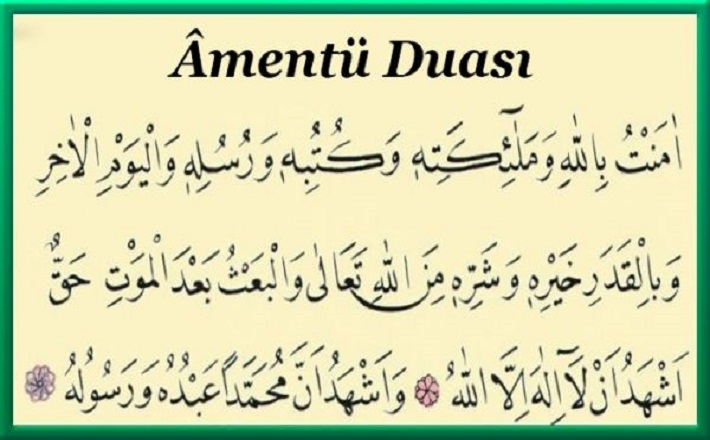 Âmentü Duası
اٰمَنْتُ بِاللّٰهِ وَمَلٰٓئِكَتِه۪ وَكُتُبِه۪ وَرُسُلِه۪ وَالْيَوْمِ الْاٰخِرِ
وَبِالْقَدَرِ خَيْرِه۪ وَشَرِّه۪ مِنَ اللّٰهِ تَعَالٰى وَالْبَعْثُ بَعْدَ الْمَوْتِ حَقٌّ
اَشْهَدُ اَنْ لَٓا اِلٰهَ اِلَّا اللّٰهُ وَاَشْهَدُ اَنَّ مُحَمَّدًا عَبْدُهُ وَرَسُولُهُ